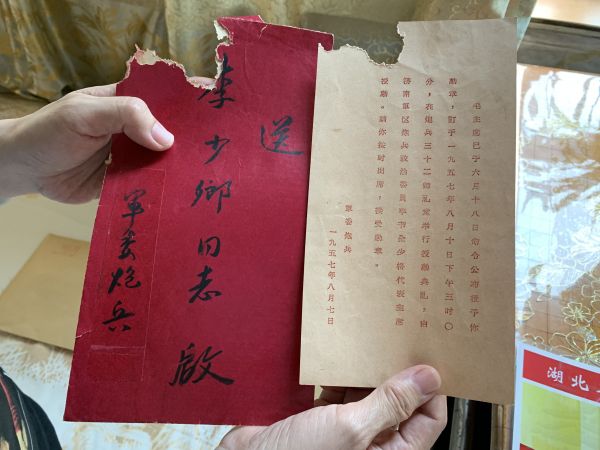 送
李少鄉同志啟
軍委炮兵
毛主席已于六月十八日命令公布授予你
勛章,訂于一九五七年八月十日下午三时〇
分,在炮兵三十二師礼堂举行授勛典礼,由
济南軍区炮兵政治委員李书全少将代表主席
授勛。請你按时出席,接受勛章。
軍委炮兵
一九五七年八月七日
湖北